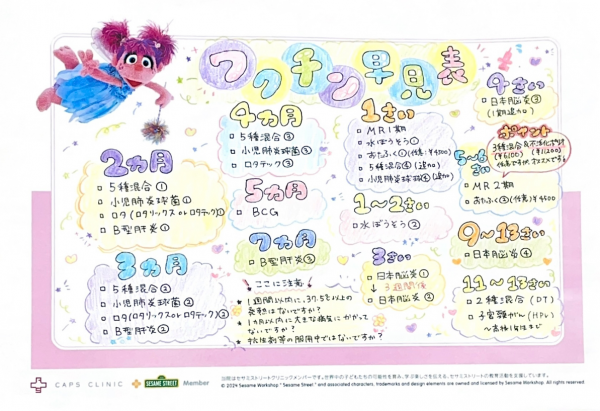 ワクチン早見表
2カ月
□ 5種混合①
□ 小児肺炎球菌①
□ ロタ(ロタリックス or ロタテック)①
□ B型肝炎①
3カ月
□ 5種混合②
□ 小児肺炎球菌②
□ ロタ(ロタリックス or ロタテック)②
□ B型肝炎②
4カ月
□ 5種混合③
□ 小児肺炎球菌③
□ ロタテック③
5カ月
□ BCG
7カ月
□ B型肝炎③
ここに注意
★ 1週間以内に、37.5℃以上の
発熱はないですか?
★ 1カ月以内に大きな病気にかかって
ないですか?
★ 抗生剤等の服用中ではないですか?
1さい
□ MR1期
□ 水ぼうそう①
□ おたふく①(任意)¥4500
□ 5種混合④(追加)
□ 小児肺炎球菌④(追加)
1〜2さい
□ 水ぼうそう②
3さい
□ 日本脳炎①
↓ 3週間後
□ 日本脳炎②
4さい
□ 日本脳炎③
(1期追加)
ポイント
3種混合&不活化ポリオ
(¥6100) (¥11200)
任意ですが、オススメです♪
5〜6さい
□ MR2期
□ おたふく②(任意)¥4500
9〜13さい
□ 日本脳炎④
11〜13さい
□ 2種混合(DT)
□ 子宮頸がん(HPV)
〜高校1年生まで
CAPS CLINIC
SESAME STREET
Member
当院はセサミストリートクリニックメンバーです。世界中の子どもたちの可能性を育み、学ぶ楽しさを伝える、セサミストリートの教育活動を支援しています。
© 2024 Sesame Workshop." Sesame Street " and associated characters, trademarks and design elements are owned and licensed by Sesame Workshop. All rights reserved.